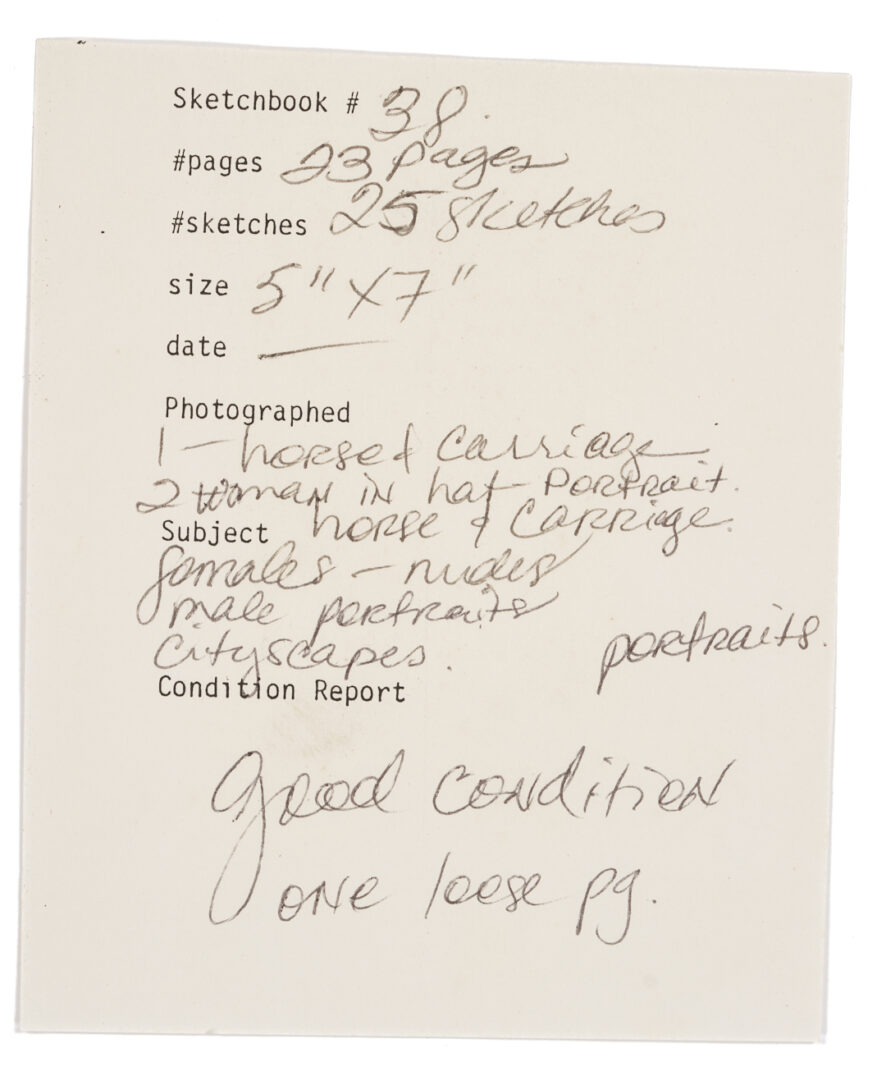 Sketchbook # 38.
#pages 23 pages
#sketches 25 sketches
size 5" X 7"
date —
Photographed
1 – horse & Carriage.
2 woman in hat – Portrait.
Subject horse & Carriage.
females – nudes
male portraits
Cityscapes. portraits.
Condition Report
good condition
one loose pg.